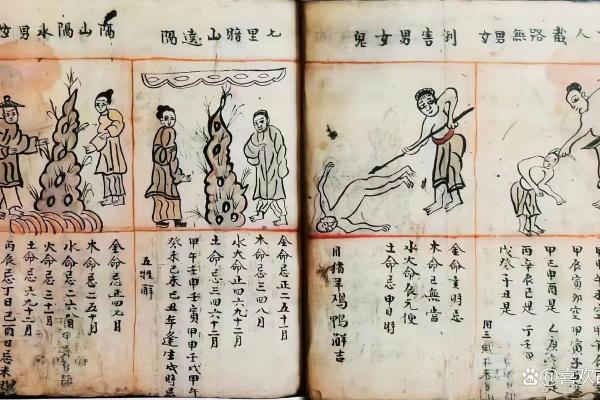 人截路無男女
甲辰寅卯空甲寅子丑
甲己申酉是
丙辛辰巳是
戊癸子丑是
倒害男女鬼
金命童時忌
木命己無害
水火命
土命甲日時
用猪羊鸡鴨觧吉
七里暗山遠隔
金命忌正二五十月
木命忌三四八月
水火命正四六九十二月
土命忌三四六十二月
甲午壬申壬寅甲申壬戌甲午
癸未己未己丑年逢生戌時忌
五牲觧
隔山隔水男女
金命忌正四七月
木命忌二五十月
水命忌二六八月
火命忌三十月
土命忌六九十二月
丙辰忌丁日己酉日忌未
@喜欢